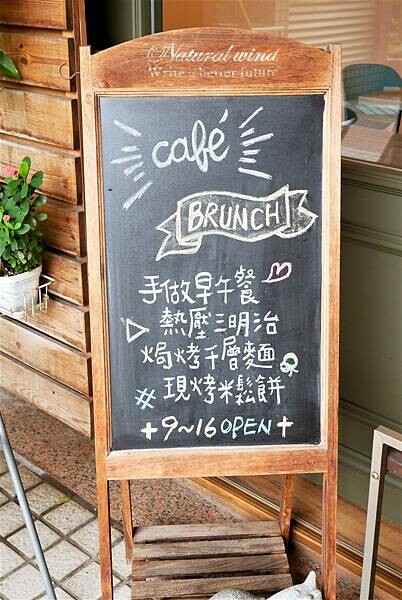 Natural wind
Write a better future
café
BRUNCH
手做早午餐
熱壓三明治
焗烤千層麵
# 現烤米鬆餅
+ 9~16 OPEN +